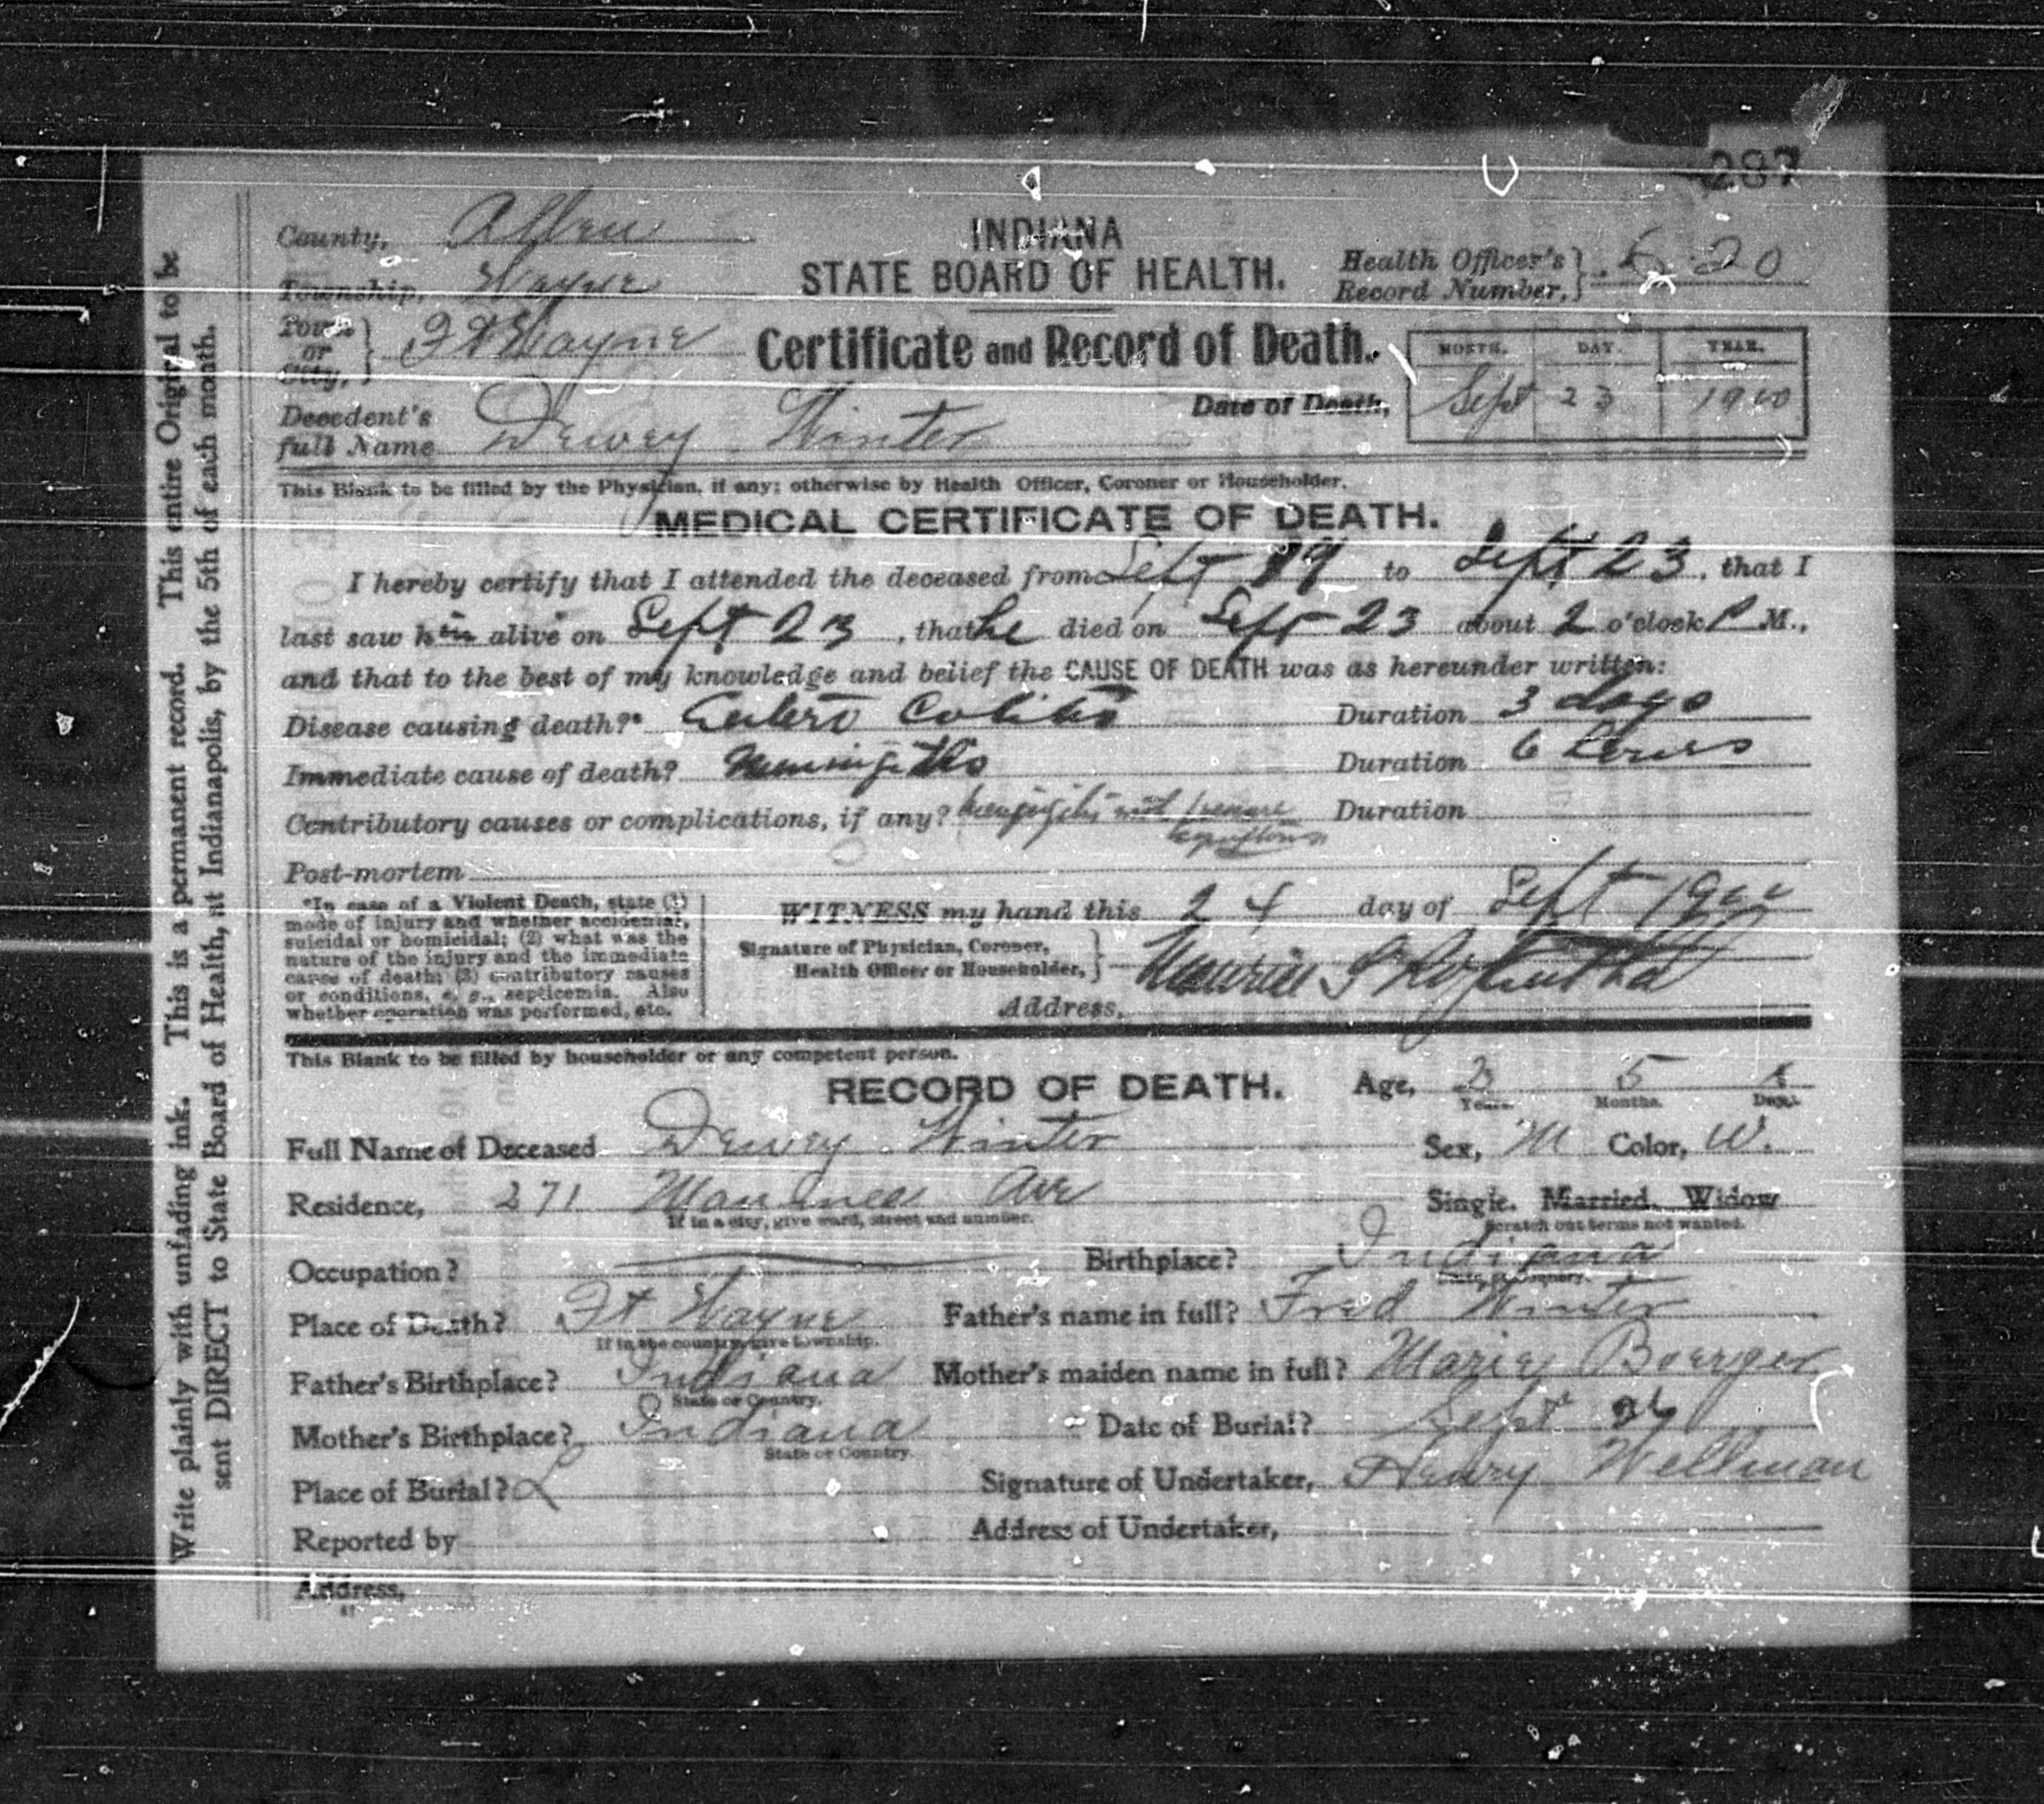 287
County, Allen
INDIANA
STATE BOARD OF HEALTH.
Health Officer's Record Number, 620
Township, Wayne
Town or City, Ft Wayne
Certificate and Record of Death.
MONTH. DAY. YEAR.
Decedent's full Name Dewey Winter
Date of Death, Sept 23 1900
This Blank to be filled by the Physician, if any; otherwise by Health Officer, Coroner or Householder.
MEDICAL CERTIFICATE OF DEATH.
I hereby certify that I attended the deceased from Sept 19 to Sept 23, that I
last saw him alive on Sept 23, that he died on Sept 23 about 2 o'clock P M.,
and that to the best of my knowledge and belief the CAUSE OF DEATH was as hereunder written:
Disease causing death?* Entero Colitis Duration 3 days
Immediate cause of death? Meningitis Duration 6 hours
Contributory causes or complications, if any? Meningitis Duration
Post-mortem
*In case of a Violent Death, state (1)
mode of injury and whether accidental,
suicidal or homicidal; (2) what was the
nature of the injury and the immediate
cause of death; (3) contributory causes
or conditions, e. g., septicemia. Also
whether operation was performed, etc.
WITNESS my hand this 24 day of Sept 1900
Signature of Physician, Coroner,
Health Officer or Householder, Maurice I Rosenthal
Address,
This Blank to be filled by householder or any competent person.
RECORD OF DEATH.
Age, 2 5
Years. Months. Days.
Full Name of Deceased Dewey Winter Sex, M Color, W.
Residence, 271 Ave Single. Married. Widow
If in a city, give ward, street and number. Scratch out terms not wanted.
Occupation? Birthplace? Indiana
State or Country.
Place of Death? Ft Wayne Father's name in full? Fred Winter
If in the country, give township.
Father's Birthplace? Indiana Mother's maiden name in full? Marie Boerger
State or Country.
Mother's Birthplace? Indiana Date of Burial? Sept 26
State or Country.
Place of Burial? L Signature of Undertaker, Henry Wellman
Reported by Address of Undertaker,
Address,
Write plainly with unfading ink. This is a permanent record. This entire Original to be
sent DIRECT to State Board of Health, at Indianapolis, by the 5th of each month.